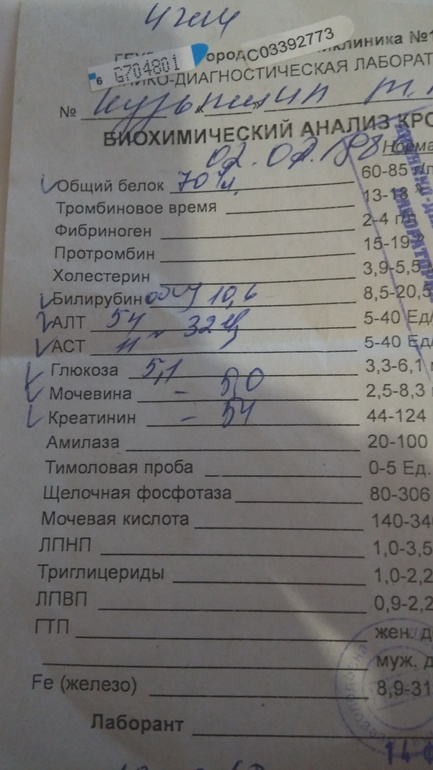 G704801
C03392773
ДИАГНОСТИЧЕСКАЯ ЛАБОРАТ
№
БИОХИМИЧЕСКИЙ АНАЛИЗ КРО
02.02.198 Норма
Общий белок 70 г/л 60-85 г/л
Тромбиновое время 13-18
Фибриноген 2-4 г/л
Протромбин 15-19
Холестерин 3,9-5,5
Билирубин общ 10,6 8,5-20,5
АЛТ 54 5-40 Ед/
АСТ 32 5-40 Ед/
Глюкоза 5,1 3,3-6,1
Мочевина - 5,0 2,5-8,3
Креатинин - 54 44-124
Амилаза 20-100
Тимоловая проба 0-5 Ед.
Щелочная фосфотаза 80-306
Мочевая кислота 140-340
ЛПНП 1,0-3,5
Триглицериды 1,0-2,2
ЛПВП 0,9-2,2
ГТП жен. д
муж. д
Fe (железо) 8,9-31
Лаборант